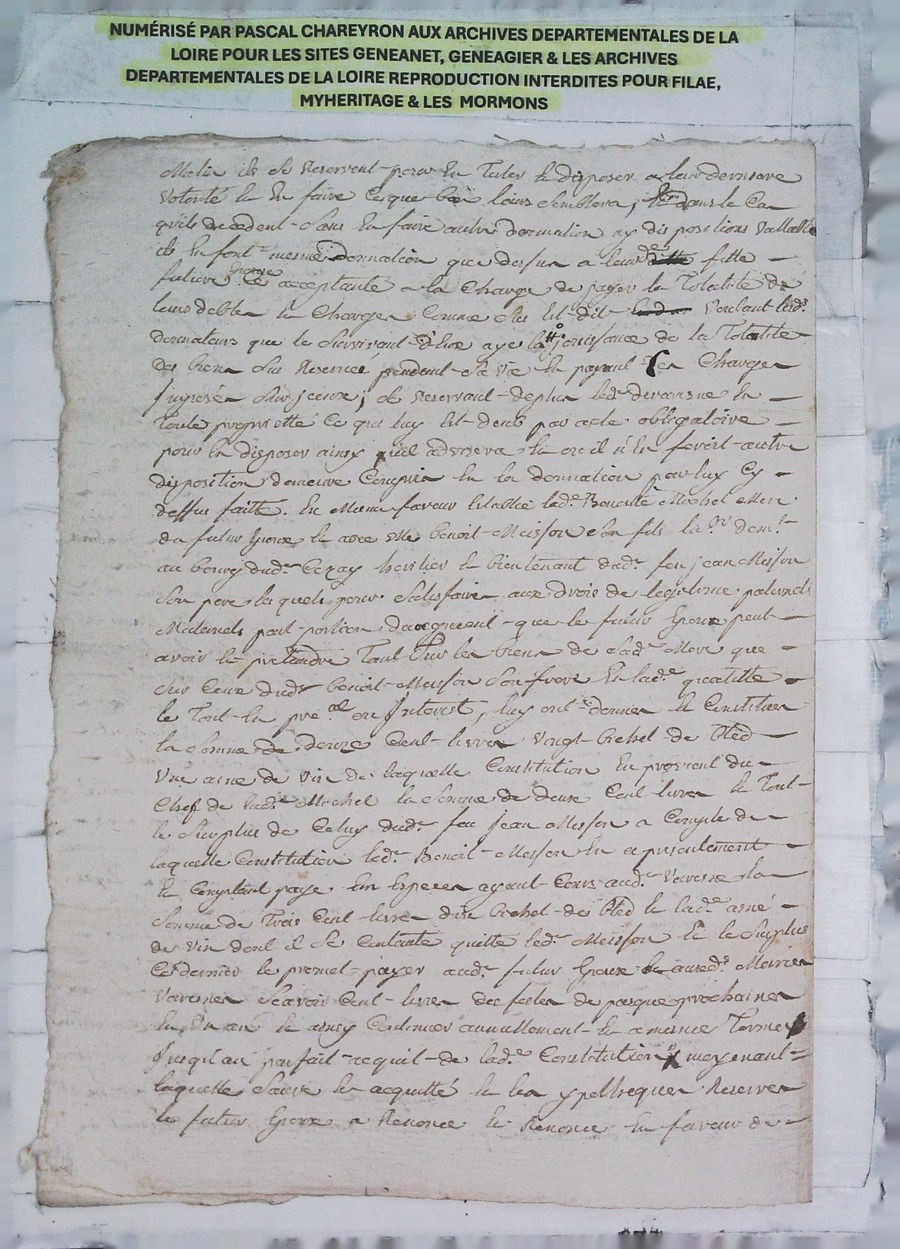 NUMÉRISÉ PAR PASCAL CHAREYRON AUX ARCHIVES DEPARTEMENTALES DE LA
LOIRE POUR LES SITES GENEANET, GENEAGIER & LES ARCHIVES
DEPARTEMENTALES DE LA LOIRE REPRODUCTION INTERDITES POUR FILAE,
MYHERITAGE & LES MORMONS
ils se Reservent pour en disposer a leur derniere
volonté et en faire ce que leurs semblera, dans le Cas
quils decedent sans en faire autre donnation ny dispositions vallable
ils en font mesme donnation que dessus a leurd.e fille
future Epouse acceptante a la Charge de payer la Totalité de
leurs debtes et Charges Comme est dit voulant lesd.
donnateurs que le survivant d'Eux aye la jouissance de la Totalité
des biens sus Reservés pendant sa vie en payant les Charges
Imposés sur iceux; se Reservant deplus led. en
toute proprietté ce qui luy est deub par acte obligatoire
pour en disposer ainsy quil advisera et ou il n'en feroit autre
disposition demeure Compris en la donnation par luy cy
dessus faitte. En Mesme faveur Establie lad.e Benoite Mere
du futur Epoux et avec Me Benoit Meisson son fils
au bourg dud. Cezay heritier et bientenant dud. feu jean Meisson
son pere lesquels pour satisfaire aux droits de legitime paternels
Maternels part portion d'augment que le futur Epoux peut
avoir et pretendre Tant sur les biens de sad.e Mere que
sur Ceux dud. benoit Meisson son frere En lad.e quallitte
le Tout en ou Interest, luy ont donner et Constituer
la somme de Cent livres Vingt de bled
Une asne de vin de laquelle Constitution en provient du
Chef de lad.e la somme de deux Cent livres le Tout
le surplus de Celuy dud. feu jean Meisson a Compte de
laquelle Constitution led. Benoit Meisson en a presentement
et Comptant paye En Especes ayant Cours aud. la
somme de Trois Cent livres dix de bled et lad.e asné
de vin dont il se Contante quitte led. Meisson Et le surplus
Ce dernier le promet payer aud. futur Epoux ausd.
scavoir Cent livres des festes de pasque prochaines
en Un an et ainsy Continuer annuellement et a mesme Termes
Jusqu'au parfait acquit de lad.e Constitution moyenant
laquelle Reserver
le futur Epoux a Renonce et Renonce en faveur de